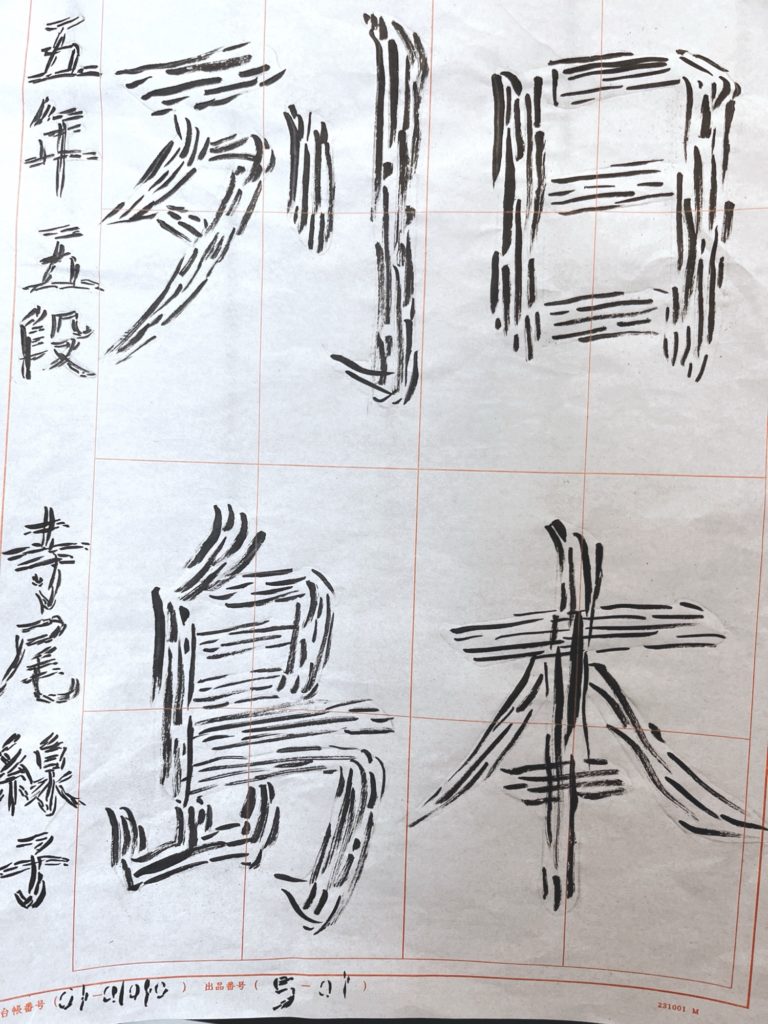 日本
列島
五年 五段 寺尾 線子
台帳番号 (01-01010) 出品番号 (5-01)
231001 M